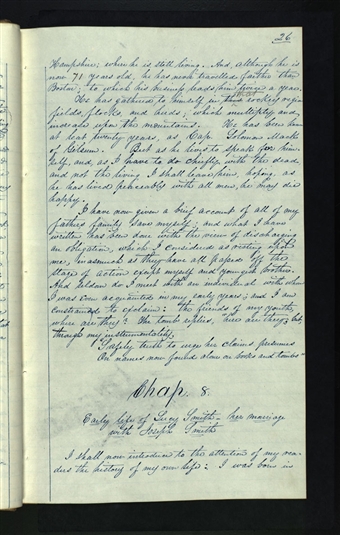 26
Hampshire; where he is still living. And, although he is
now 71 years old, he has never travelled farther than
Boston; to which his business leads him twice a year.
He has gathered to himself in this rocky region
fields, flocks, and herds; which multiply and
increase upon the mountains. He has been known
at least twenty years, as Cap Solomon Mack
of Gilsum. But as he lives to speak for him
self, and, as I have to do chiefly with the dead
and not the living I shall leave him, hoping, as
he has lived peaceably with all men, he may die
happy.
I have now given a brief account of all of my
fathers family save myself; and what I have
written has been done with the view of discharging
an obligation, which I considered as resting upon
me, inasmuch as they have all passed off the
stage of action except myself and youngest brother.
And seldom do I meet with an individual with whom
I was even acquainted in my early years; and I am
constrained to exclaim: "the friends of my youth,
where are they?" The tomb replies, "here are they"; but,
through my instrumentality,
"Safely truth to urge her claims presumes
On names now found alone on books and tombs"
Chap. 8.
Early life of Lucy Smith - her marriage
with Joseph Smith
I shall now introduce to the attention of my rea-
ders the history of my own life: I was born in